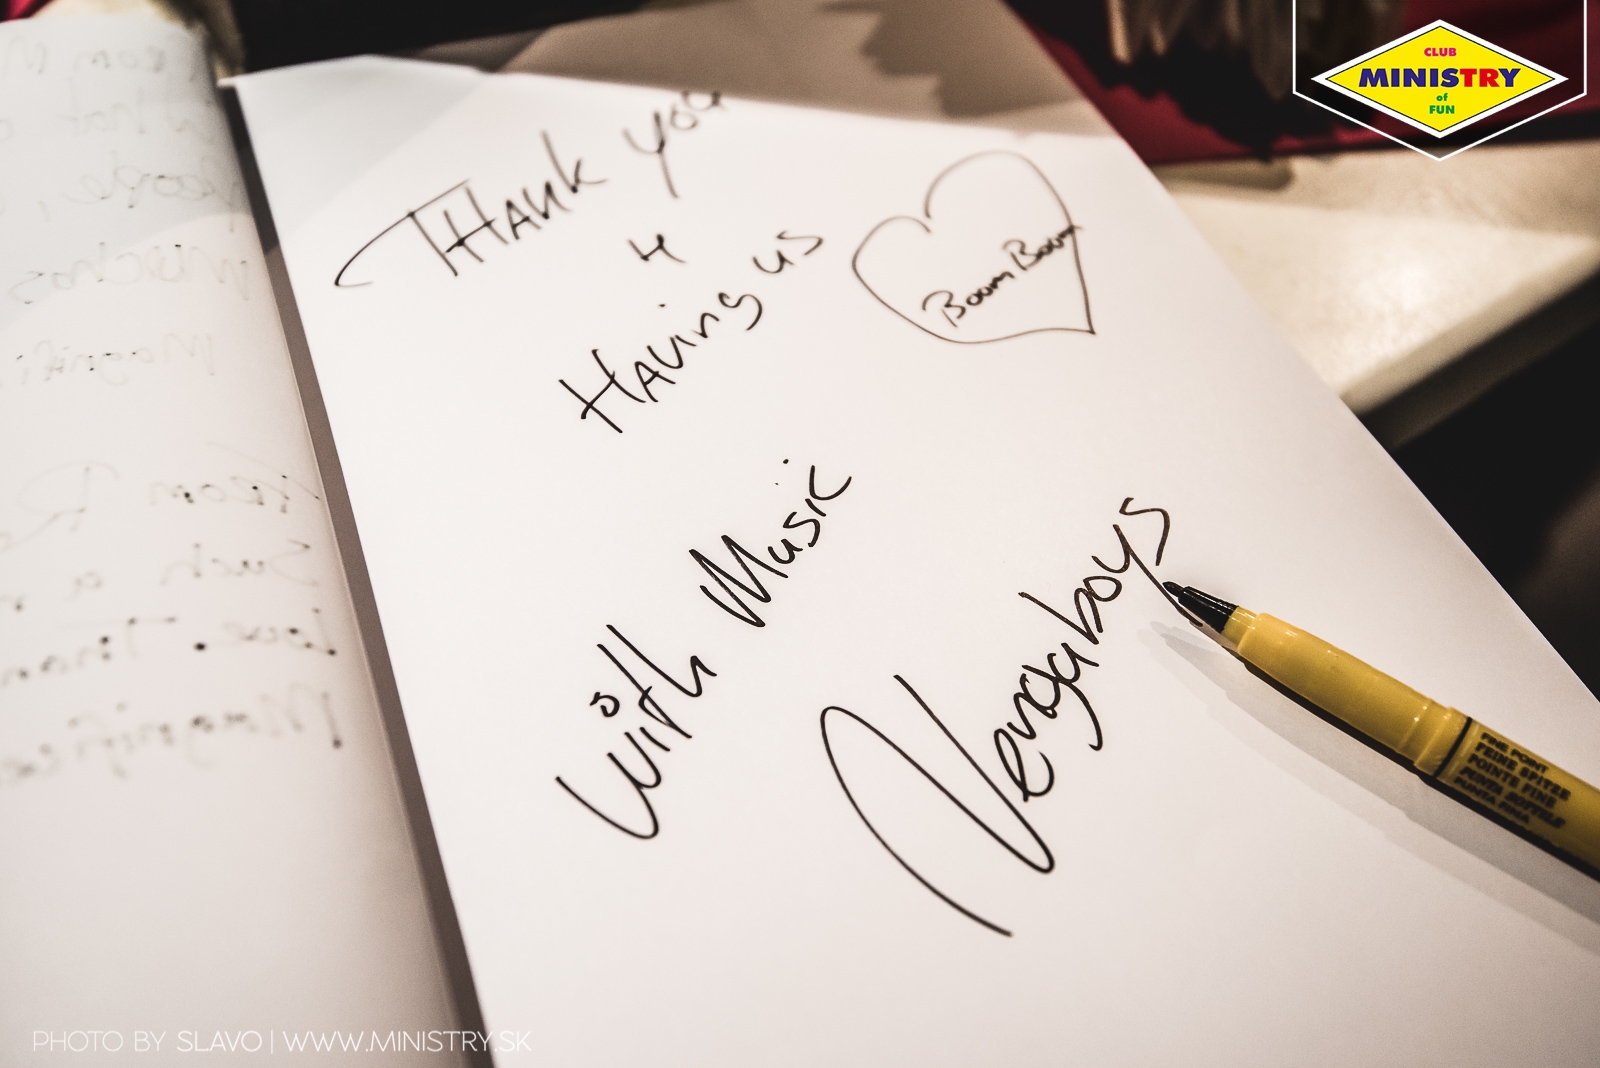 CLUB
MINISTRY
of
FUN
THANK you
4
HAVING us
Boom Boom
With Music
Vengaboys
FINE POINT
FEINE SPITZE
POINTE FINE
PUNTA SOTTILE
PUNTA FINA
PHOTO BY SLAVO | WWW.MINISTRY.SK